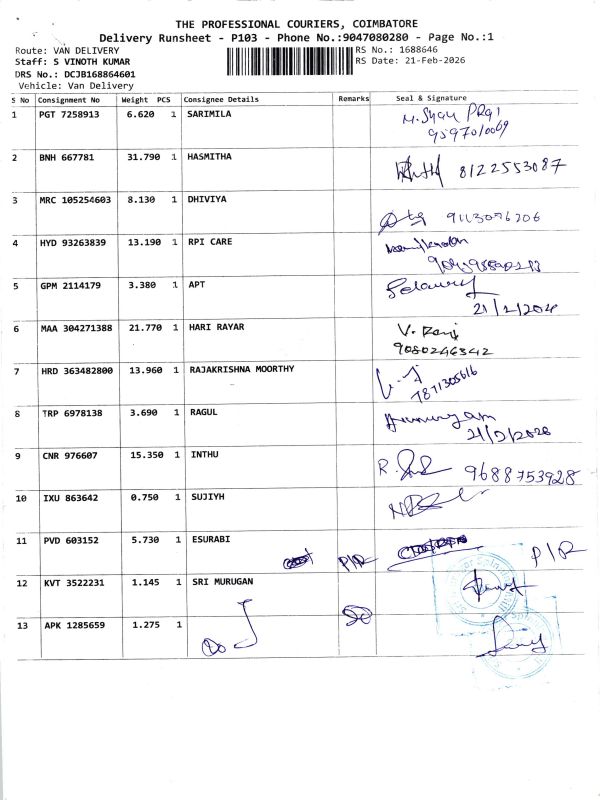 THE PROFESSIONAL COURIERS, COIMBATORE
Delivery Runsheet - P103 - Phone No.:9047080280 - Page No.:1
Route: VAN DELIVERY
RS No.: 1688646
Staff: S VINOTH KUMAR
RS Date: 21-Feb-2026
DRS No.: DCJB168864601
Vehicle: Van Delivery
S No Consignment No Weight PCS Consignee Details Remarks Seal & Signature
1 PGT 7258913 6.620 1 SARIMILA
2 BNH 667781 31.790 1 HASMITHA 8122553087
3 MRC 105254603 8.130 1 DHIVIYA
4 HYD 93263839 13.190 1 RPI CARE
5 GPM 2114179 3.380 1 APT
6 MAA 304271388 21.770 1 HARI RAYAR
9080246342
7 HRD 363482800 13.960 1 RAJAKRISHNA MOORTHY
7871305616
8 TRP 6978138 3.690 1 RAGUL
21/2/2026
9 CNR 976607 15.350 1 INTHU 9688753928
10 IXU 863642 0.750 1 SUJIYH
11 PVD 603152 5.730 1 ESURABI P/R P/R
12 KVT 3522231 1.145 1 SRI MURUGAN
13 APK 1285659 1.275 1 Do